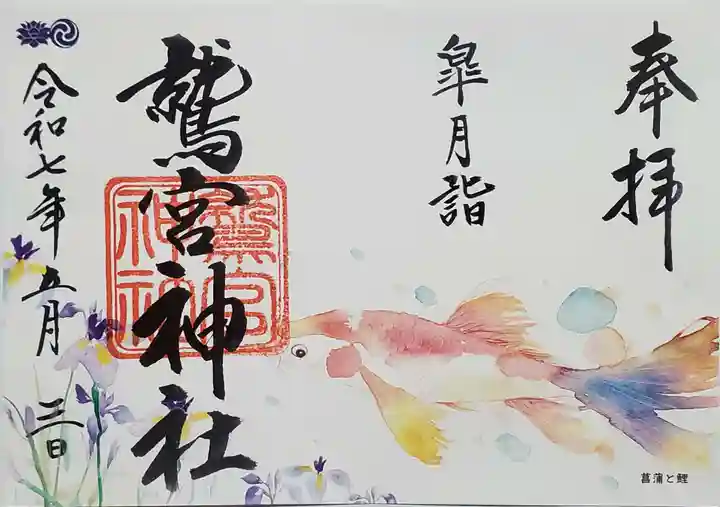 奉拝
皐月詣
鷲宮神社
鷲宮
神社
令和七年五月三日
菖蒲と鯉